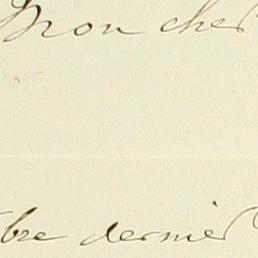 Mon cher
bre dernier